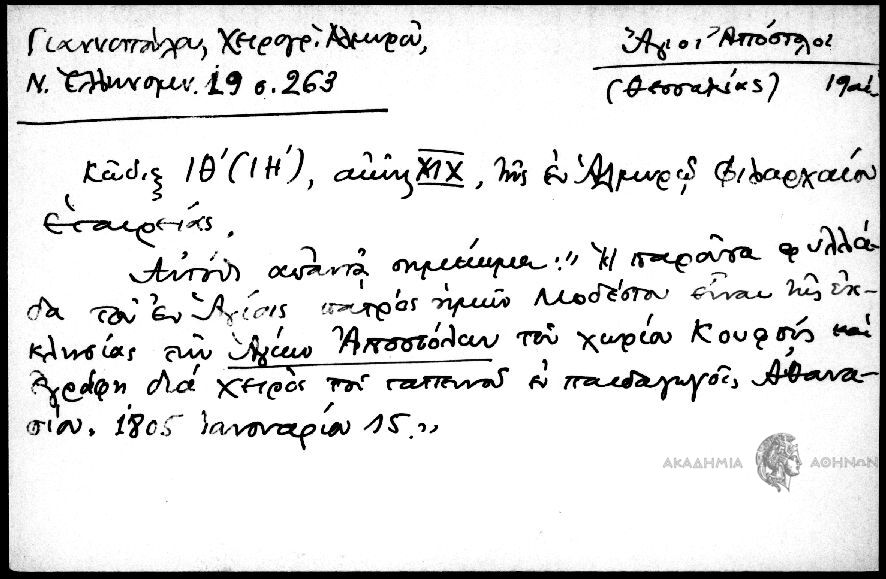 Γιαννοπούλου, Χειρόγρ. Ἁλμυροῦ,
Ν. Ἑλληνομν. 19 σ. 263
Ἅγιοι Ἀπόστολοι
(Θεσσαλίας) 19 αἰ.
Κῶδιξ ΙΘ΄ (ΙΗ΄), αἰῶν. ΧΙΧ, τῆς ἐν Ἁλμυρῷ Φιλαρχαίου
Ἑταιρείας.
ἀπαντᾷ σημείωμα: "Ἡ παροῦσα φυλλά-
δα τοῦ ἐν Ἁγίοις πατρὸς ἡμῶν Μοδέστου εἶναι τῆς ἐκ-
κλησίας τῶν Ἁγίων Ἀποστόλων τοῦ χωρίου Κουφοῦς καὶ
ἐγράφη διὰ χειρὸς τοῦ ταπεινοῦ ἐν παιδαγωγοῖς Ἀθανα-
σίου. 1805 Ἰαννουαρίου 15."
ΑΚΑΔΗΜΙΑ ΑΘΗΝΩΝ